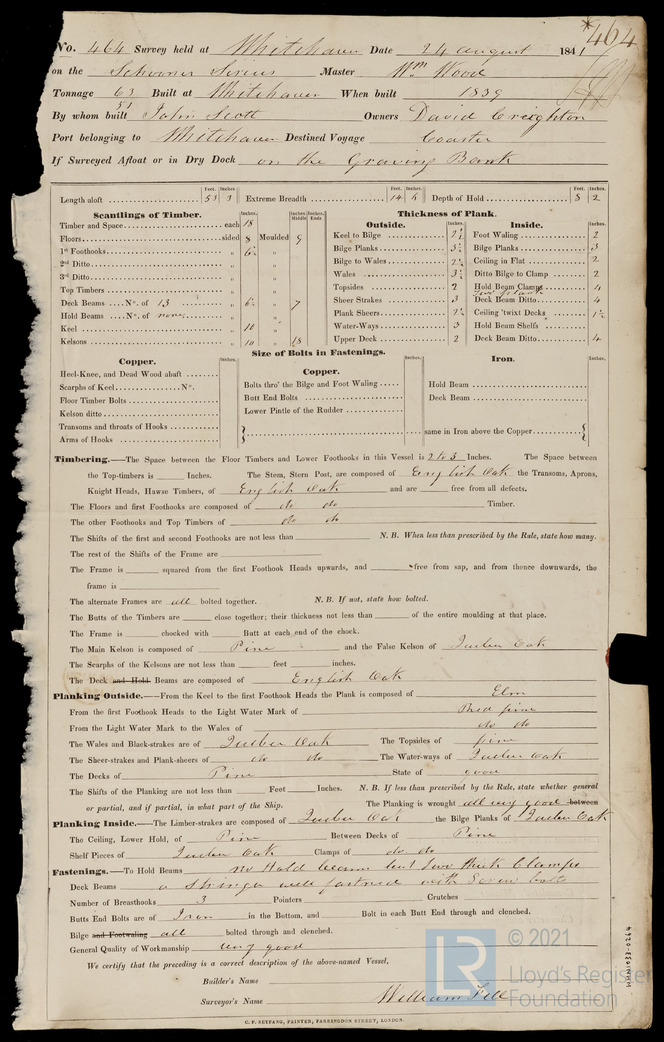 *464
No. 464 Survey held at Whitehaven Date 24 august 1841
on the Schooner Sirius Master Wm Wood
Tonnage 63 Built at Whitehaven When built 1839
51
By whom built John Scott Owners David Creighton
Port belonging to Whitehaven Destined Voyage Coaster
If Surveyed Afloat or in Dry Dock on the Graving Bank
Feet. Inches. Feet. Inches. Feet. Inches.
Length aloft 53 3 Extreme Breadth 14 Depth of Hold 8 2
Scantlings of Timber.
Inches. Inches Middle Inches Ends
Timber and Space each 18
Floors sided 8 Moulded 9
1st Foothooks „ 6½ „
2nd Ditto „ „
3rd Ditto „ „
Top Timbers „ „
Deck Beams No. of 13 „ 6½ „ 7
Hold Beams No. of none „ „
Keel „ 10 „
Kelsons „ 10 „ 18
Thickness of Plank.
Outside.
Inches.
Keel to Bilge 2½
Bilge Planks 3½
Bilge to Wales 2½
Wales 3½
Topsides 2
Sheer Strakes 3
Plank Sheers 2½
Water-Ways 3
Upper Deck 2
Inside.
Inches.
Foot Waling 2
Bilge Planks 3
Ceiling in Flat 2
Ditto Bilge to Clamp 2
Hold Beam Clamps 4
Deck Beam Ditto 4
Ceiling 'twixt Decks 1½
Hold Beam Shelfs
Deck Beam Ditto 4
Size of Bolts in Fastenings.
Copper.
Inches.
Heel-Knee, and Dead Wood abaft
Scarphs of Keel No.
Floor Timber Bolts
Kelson ditto
Transoms and throats of Hooks
Arms of Hooks
Copper.
Inches.
Bolts thro' the Bilge and Foot Waling
Butt End Bolts
Lower Pintle of the Rudder
Iron.
Inches.
Hold Beam
Deck Beam
same in Iron above the Copper
Timbering.—The Space between the Floor Timbers and Lower Foothooks in this Vessel is 2 to 3 Inches. The Space between
the Top-timbers is Inches. The Stem, Stern Post, are composed of English Oak the Transoms, Aprons,
Knight Heads, Hawse Timbers, of English Oak and are free from all defects.
The Floors and first Foothooks are composed of do do Timber.
The other Foothooks and Top Timbers of do do
The Shifts of the first and second Foothooks are not less than N. B. When less than prescribed by the Rule, state how many.
The rest of the Shifts of the Frame are
The Frame is squared from the first Foothook Heads upwards, and free from sap, and from thence downwards, the
frame is
The alternate Frames are all bolted together. N. B. If not, state how bolted.
The Butts of the Timbers are close together; their thickness not less than of the entire moulding at that place.
The Frame is chocked with Butt at each end of the chock.
The Main Kelson is composed of Pine and the False Kelson of Quebec Oak
The Scarphs of the Kelsons are not less than feet inches.
The Deck and Hold Beams are composed of English Oak
Planking Outside.—From the Keel to the first Foothook Heads the Plank is composed of Elm
From the first Foothook Heads to the Light Water Mark of Red pine
From the Light Water Mark to the Wales of do do
The Wales and Black-strakes are of Quebec Oak The Topsides of pine
The Sheer-strakes and Plank-sheers of do do The Water-ways of Quebec Oak
The Decks of Pine State of good
The Shifts of the Planking are not less than Feet Inches. N. B. If less than prescribed by the Rule, state whether general
or partial, and if partial, in what part of the Ship. The Planking is wrought all very good between
Planking Inside.—The Limber-strakes are composed of Quebec Oak the Bilge Planks of Quebec Oak
The Ceiling, Lower Hold, of Pine Between Decks of Pine
Shelf Pieces of Quebec Oak Clamps of do do
Fastenings.—To Hold Beams no Hold beams but two thick Clamps
Deck Beams a Stringer well fastened with Screw bolts
Number of Breasthooks 3 Pointers Crutches
Butts End Bolts are of Iron in the Bottom, and Bolt in each Butt End through and clenched.
Bilge and Footwaling all bolted through and clenched.
General Quality of Workmanship very good
We certify that the preceding is a correct description of the above-named Vessel,
Builder's Name
Surveyor's Name William Fell
C. F. SEYFANG, PRINTER, FARRINGDON STREET, LONDON.
LR © 2021
Lloyd's Register
Foundation
WHN1033-0264